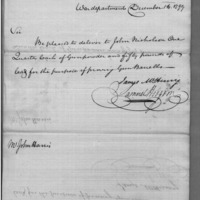 War department, December 14. 1799
Sir
Be pleased to deliver to John Nicholson One
Quarter Cask of Gunpowder and fifty pounds of
for the purpose of proving Gun Barrells
James McHenry
Mr John Harris